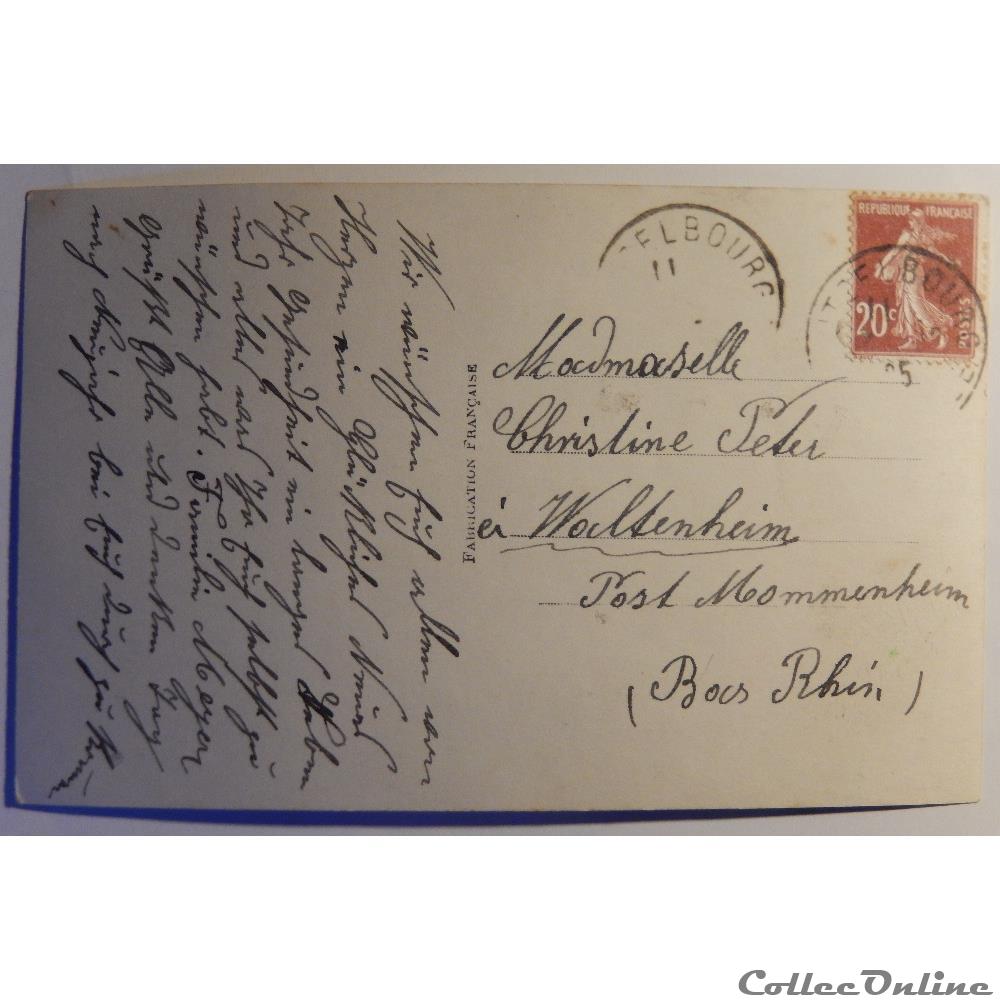 Wir wünschen Euch allen von
Herzen ein Glückliches Neues
Jahr Gesundheit ein langes Leben
und alles was Ihr Euch selbst zu
wünschen habt. Familie Meyer
Grüßt Alle und danken
noch bei Euch
FABRICATION FRANÇAISE
ELBOURG
11
REPUBLIQUE FRANÇAISE
20c
POSTES
ELBOURG
Madmaselle
Christine Peter
Waltenheim
Post Mommenheim
(Bas Rhin)
CollecOnline